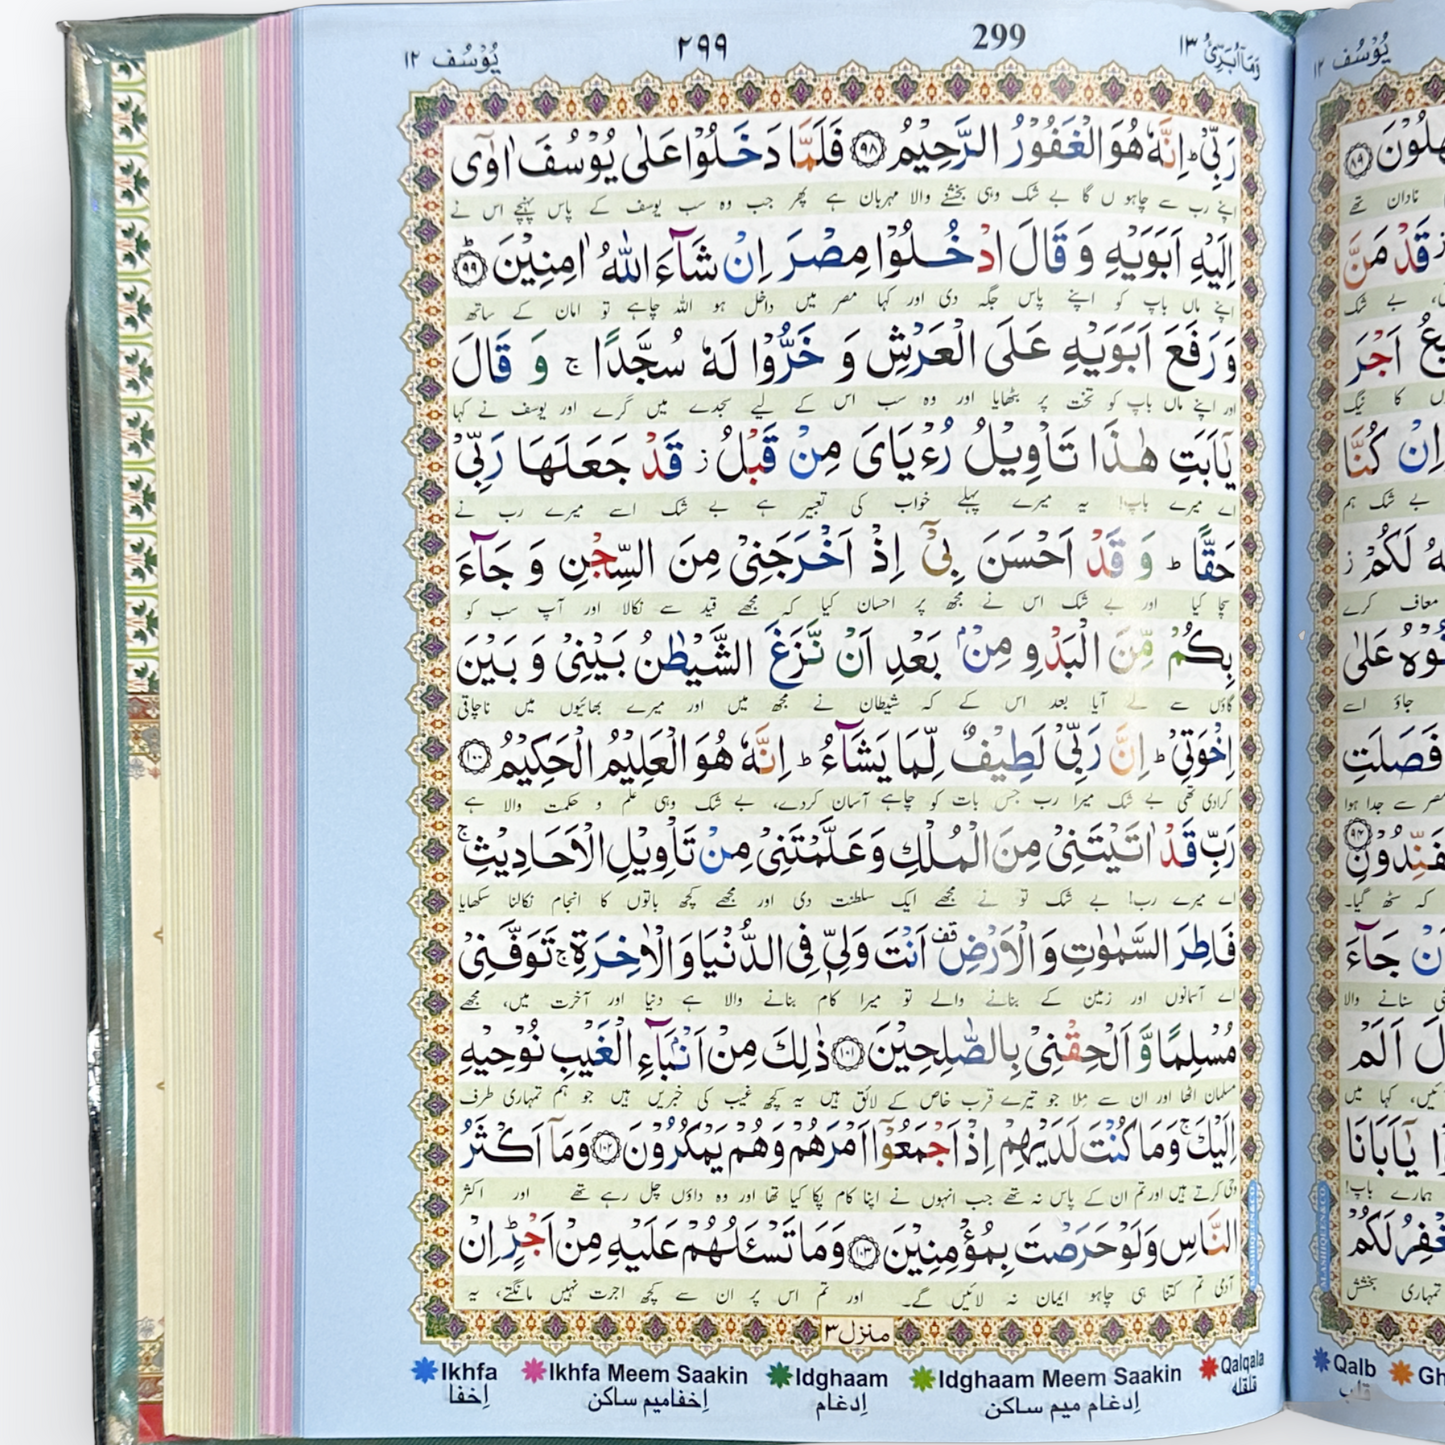 يُوْسُف ١٢
٢٩٩
299
وَمَاۤ اُبَرِّئُ ١٣
رَبِّیْ ؕ اِنَّهٗ هُوَ الْغَفُوْرُ الرَّحِیْمُ ﴿٩٨﴾ فَلَمَّا دَخَلُوْا عَلٰی یُوْسُفَ اٰوٰۤی
اپنے رب سے چاہو ں گا بے شک وہی بخشنے والا مہربان ہے پھر جب وہ سب یوسف کے پاس پہنچے اس نے
اِلَیْهِ اَبَوَیْهِ وَ قَالَ ادْخُلُوْا مِصْرَ اِنْ شَآءَ اللّٰهُ اٰمِنِیْنَ ﴿٩٩﴾ؕ
اپنے ماں باپ کو اپنے پاس جگہ دی اور کہا مصر میں داخل ہو اللہ چاہے تو امان کے ساتھ
وَ رَفَعَ اَبَوَیْهِ عَلَی الْعَرْشِ وَ خَرُّوْا لَهٗ سُجَّدًا ۚ وَ قَالَ
اور اپنے ماں باپ کو تخت پر بٹھایا اور وہ سب اس کے لیے سجدے میں گرے اور یوسف نے کہا
یٰۤاَبَتِ هٰذَا تَاْوِیْلُ رُءْیَایَ مِنْ قَبْلُ ؗ قَدْ جَعَلَهَا رَبِّیْ
اے میرے باپ! یہ میرے پہلے خواب کی تعبیر ہے بے شک اسے میرے رب نے
حَقًّا ؕ وَ قَدْ اَحْسَنَ بِیْۤ اِذْ اَخْرَجَنِیْ مِنَ السِّجْنِ وَ جَآءَ
سچا کیا اور بے شک اس نے مجھ پر احسان کیا کہ مجھے قید سے نکالا اور آپ سب کو
بِكُمْ مِّنَ الْبَدْوِ مِنْۢ بَعْدِ اَنْ نَّزَغَ الشَّیْطٰنُ بَیْنِیْ وَ بَیْنَ
گاؤں سے لے آیا بعد اس کے کہ شیطان نے مجھ میں اور میرے بھائیوں میں ناچاقی
اِخْوَتِیْ ؕ اِنَّ رَبِّیْ لَطِیْفٌ لِّمَا یَشَآءُ ؕ اِنَّهٗ هُوَ الْعَلِیْمُ الْحَكِیْمُ ﴿١٠٠﴾
کرادی تھی بے شک میرا رب جس بات کو چاہے آسان کردے، بے شک وہی علم و حکمت والا ہے
رَبِّ قَدْ اٰتَیْتَنِیْ مِنَ الْمُلْكِ وَ عَلَّمْتَنِیْ مِنْ تَاْوِیْلِ الْاَحَادِیْثِ ۚ
اے میرے رب! بے شک تو نے مجھے ایک سلطنت دی اور مجھے کچھ باتوں کا انجام نکالنا سکھایا
فَاطِرَ السَّمٰوٰتِ وَ الْاَرْضِ قف اَنْتَ وَلِیّٖ فِی الدُّنْیَا وَ الْاٰخِرَةِ ۚ تَوَفَّنِیْ
اے آسمانوں اور زمین کے بنانے والے تو میرا کام بنانے والا ہے دنیا اور آخرت میں، مجھے
مُسْلِمًا وَّ اَلْحِقْنِیْ بِالصّٰلِحِیْنَ ﴿١٠١﴾ ذٰلِكَ مِنْ اَنْۢبَآءِ الْغَیْبِ نُوْحِیْهِ
مسلمان اٹھا اور ان سے ملا جو تیرے قرب خاص کے لائق ہیں یہ کچھ غیب کی خبریں ہیں جو ہم تمہاری طرف
اِلَیْكَ ۚ وَ مَا كُنْتَ لَدَیْهِمْ اِذْ اَجْمَعُوْۤا اَمْرَهُمْ وَ هُمْ یَمْكُرُوْنَ ﴿١٠٢﴾ وَ مَاۤ اَكْثَرُ
وحی کرتے ہیں اور تم ان کے پاس نہ تھے جب انہوں نے اپنا کام پکا کیا تھا اور وہ داؤں چل رہے تھے اور اکثر
النَّاسِ وَ لَوْ حَرَصْتَ بِمُؤْمِنِیْنَ ﴿١٠٣﴾ وَ مَا تَسْـَٔلُهُمْ عَلَیْهِ مِنْ اَجْرٍ ؕ اِنْ
آدمی تم کتنا ہی چاہو ایمان نہ لائیں گے۔ اور تم اس پر ان سے کچھ اجرت نہیں مانگتے، یہ
منزل ٣
Ikhfa
Ikhfa Meem Saakin
Idghaam
Idghaam Meem Saakin
Qalqala
اِخفا
اِخفامیم ساکن
اِدغام
اِدغام میم ساکن
قلقله
يُوْسُف ١٢
نادان تھے
قَدْ مَنَّ
بے شک
اَجْرَ
کا نیک
اِنْ كُنَّا
بے شک ہم
لَكُمْ
معاف کرے
عَلٰی
جاؤ اسے
فَصَلَتِ
مصر سے جدا ہوا
کہ سٹھ گیا۔
جَآءَ
سنانے والا
اَلَمْ
کہا میں
یٰۤاَبَانَا
ہمارے باپ!
لَكُمْ
تمہاری بخشش
Qalb
قلب